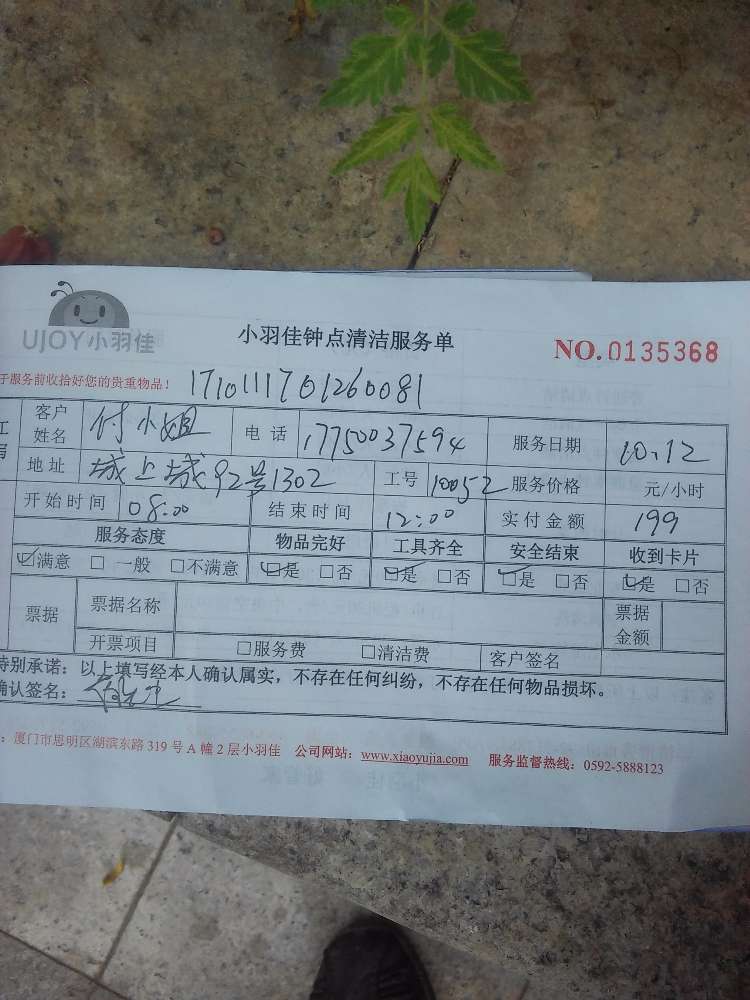 UJOY小羽佳
小羽佳钟点清洁服务单
NO.0135368
于服务前收拾好您的贵重物品！ 1710111701260081
客户姓名 付小姐 电话 17750037594 服务日期 10.12
地址 城上城92号1302 工号 10052 服务价格 元/小时
开始时间 08:00 结束时间 12:00 实付金额 199
服务态度 物品完好 工具齐全 安全结束 收到卡片
☑满意 □一般 □不满意 ☑是 □否 ☑是 □否 ☑是 □否 ☑是 □否
票据 票据名称 票据金额
开票项目 □服务费 □清洁费 客户签名
特别承诺：以上填写经本人确认属实，不存在任何纠纷，不存在任何物品损坏。
确认签名：
：厦门市思明区湖滨东路 319 号 A 幢 2 层小羽佳 公司网站：www.xiaoyujia.com 服务监督热线：0592-5888123